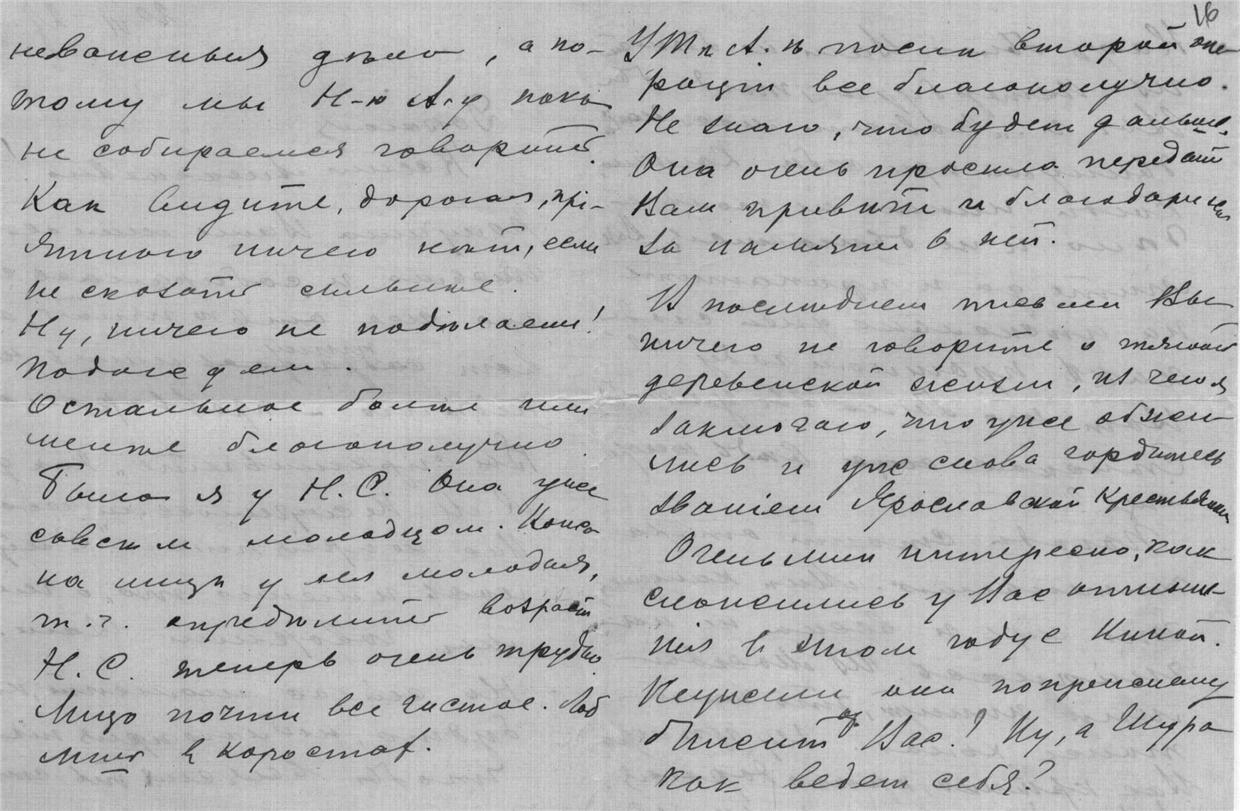 неважныя дѣла, а по-
тому мы Н-ю А-у пока
не собираемся говорить.
Как видите, дорогая, прі-
ятного ничего нѣт, если
не сказать сильнѣе.
Ну, ничего не подѣлаешь!
Подождем.
Остальное болѣе или
менѣе благополучно.
Была я у Н.С. Она уже
совсѣм молодцом. Кожа
на лицѣ у нея молодая,
т.ч. опредѣлить возраст
Н.С. теперь очень трудно.
Лицо почти все чистое. Лоб
в коростах.
16
У Т-ы А-ы послѣ второй опе-
раціи все благополучно.
Не знаю, что будет дальше.
Она очень просила передать
Вам привѣт и благодарность
за память о ней.
В послѣднем письмѣ Вы
ничего не говорите о тяжелой
деревенской жизни, из чего я
заключаю, что уже обжи-
лись и уже снова гордитесь
званіем Ярославской Крестьянки
Очень мнѣ интересно, как
сложились у Вас отноше-
нія в этом году с Ниной.
Неужели она попрежнему
от Вас? Ну, а Шура
как ведет себя?